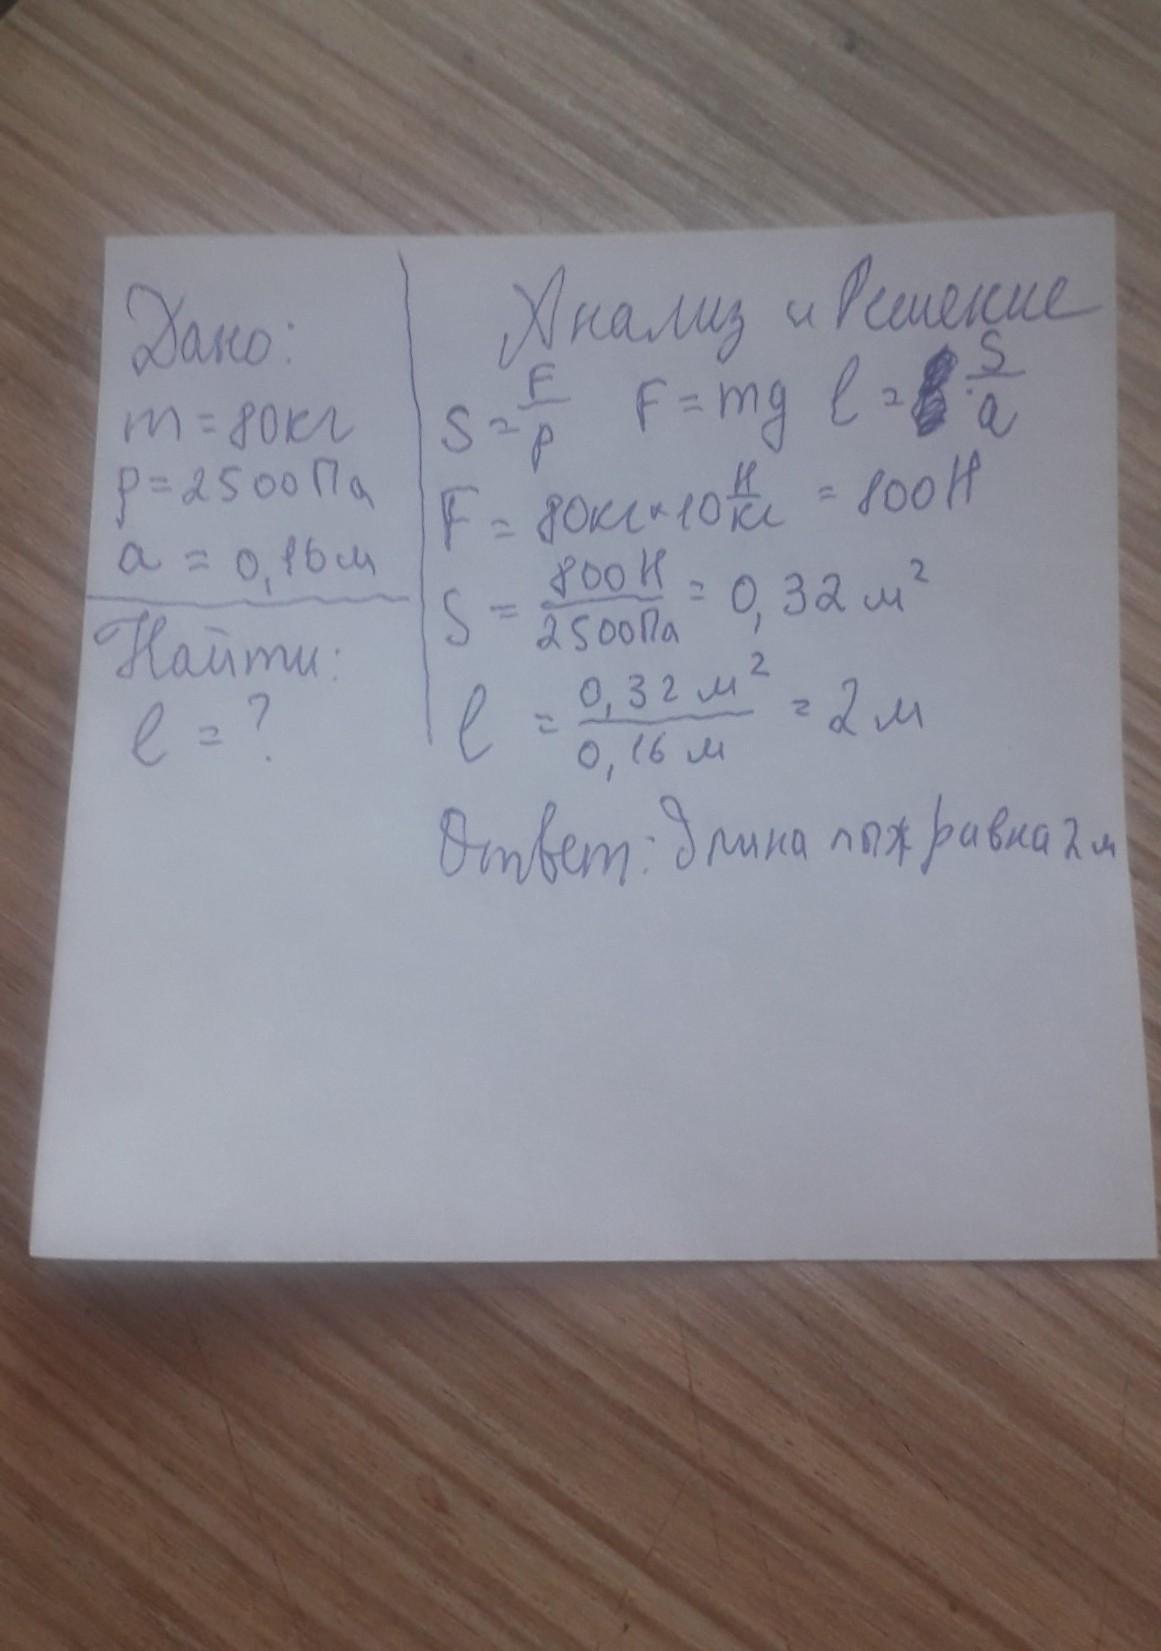 Дано:
m = 80кг
p = 2500Па
a = 0,16м
Найти:
l = ?
Анализ и Решение
S = F/p F = mg l = S/a
F = 80кг × 10 Н/кг = 800Н
S = 800Н/2500Па = 0,32 м²
l = 0,32 м²/0,16 м = 2 м
Ответ: длина лыж равна 2 м